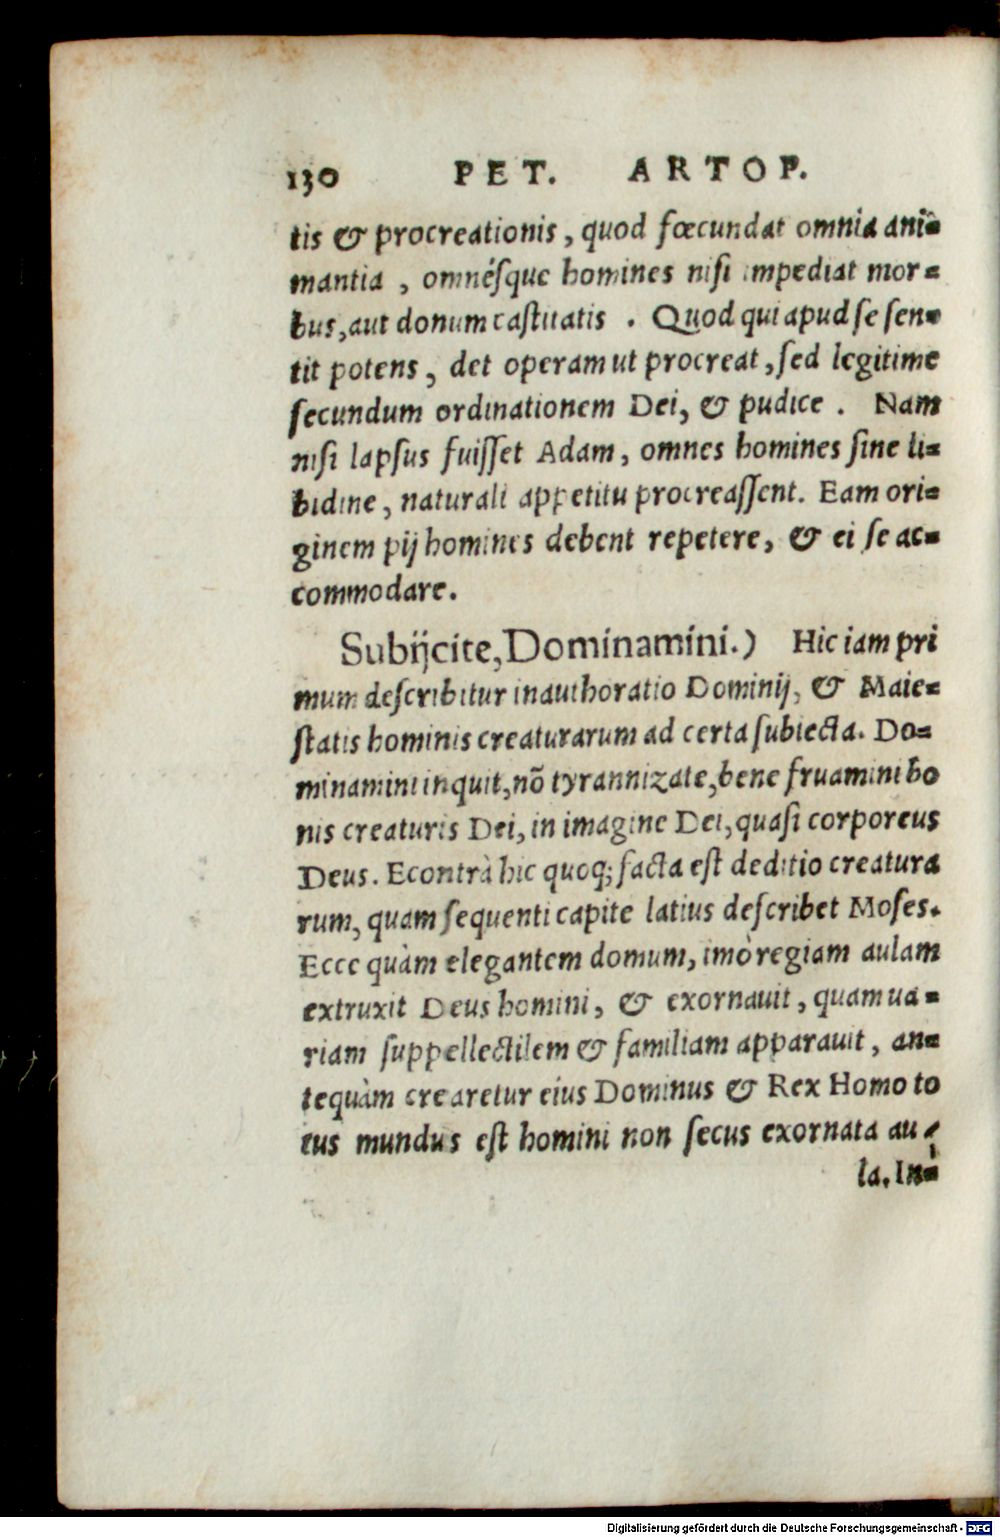 130 PET. ARTOP.
tis & procreationis, quod fœcundat omnia ani=
mantia, omnésque homines nisi impediat mor=
bus, aut donum castitatis. Quod qui apud se sen=
tit potens, det operam ut procreat, sed legitime
secundum ordinationem Dei, & pudice. Nam
nisi lapsus fuisset Adam, omnes homines sine li=
bidine, naturali appetitu procreassent. Eam ori=
ginem pij homines debent repetere, & ei se ac=
commodare.
Subijcite, Dominamini.) Hic iam pri
mum describitur inauthoratio Dominij, & Maie=
statis hominis creaturarum ad certa subiecta. Do=
minamini inquit, nõ tyrannizate, bene fruamini bo
nis creaturis Dei, in imagine Dei, quasi corporeus
Deus. Econtrà hic quoq; facta est deditio creatura
rum, quam sequenti capite latius describet Moses.
Ecce quàm elegantem domum, imò regiam aulam
extruxit Deus homini, & exornauit, quam ua=
riam suppellectilem & familiam apparauit, an=
tequàm crearetur eius Dominus & Rex Homo to
tus mundus est homini non secus exornata au
la. In=
Digitalisierung gefördert durch die Deutsche Forschungsgemeinschaft - DFG